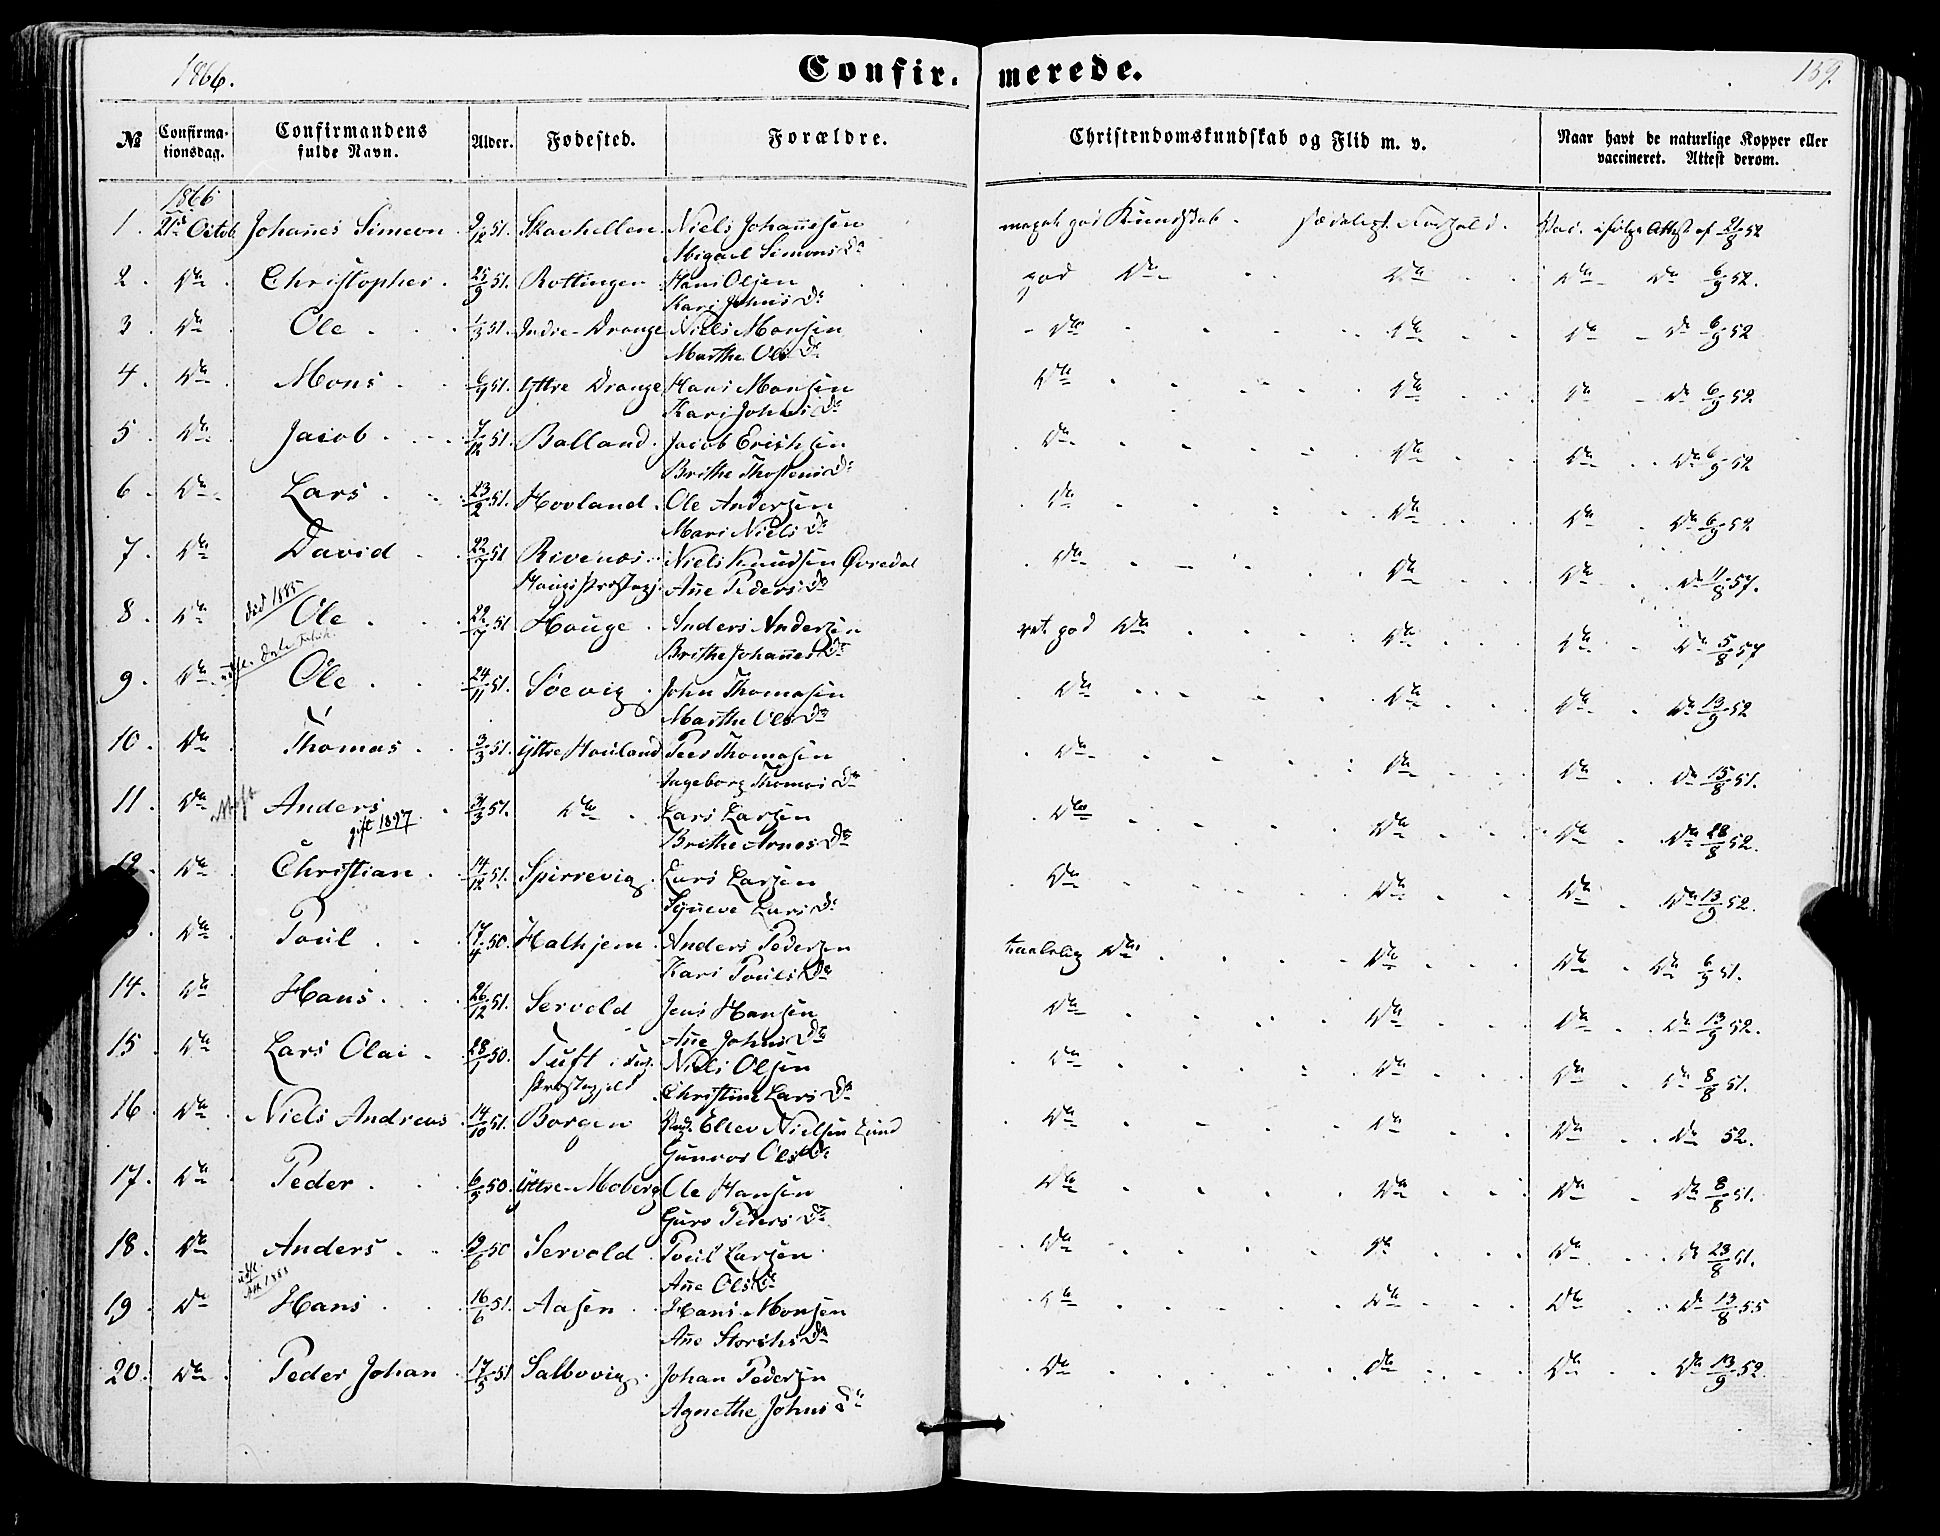 1866.
Confirmerede.
159.
№
Confirmationsdag.
Confirmandens fulde Navn.
Alder.
Fødested.
Forældre.
Christendomskundskab og Flid m. v.
Naar havt de naturlige Kopper eller vaccineret. Attest derom.
1866
1. 21de Octob. Johanes Simeon. 9/12 51. Skavhellen. Niels Johannesen meget god Kundskab. sædeligt Forhold. Vac. ifølge Attest af 21/8 52
Abigael Simons Dr
2. Do. Christopher. 25/9 51. Rottingen. Hans Olsen god Do Do Do Do 6/9 52.
Kari Johns Dr
3. Do. Ole. 1/3 51. Indre-Drange Niels Monsen Do Do Do Do 6/9 52
Marthe Ols Dr
4. Do. Mons. 6/9 51. Yttre Drange Hans Monsen Do Do Do Do 6/9 52
Kari Johns Dr
5. Do. Jacob. 7/12 51. Balland. Jacob Erichsen Do Do Do Do 6/9 52
Brithe Thostens Dr
6. Do. Lars. 23/2 51. Hovland. Ole Andersen Do Do Do Do 6/9 52
Mari Niels Dr
7. Do David. 22/7 51 Rivenæs Niels Knudsen Øvredal Do Do Do Do 11/8 57.
Haugs Præstegj. Ane Peders Dr
død 1885
8. Do Ole. 22/7 51 Houge. Anders Andersen ret god Do Do Do Do 5/8 57
Brithe Johannes Dr
9. Do. Ole. 24/11 51. Søevig. John Thomasen Do Do Do Do 13/9 52
Marthe Ols Dr
10. Do. Thomas. 3/3 51. Yttre Houland Peer Thomasen Do Do Do Do 15/8 51.
Ingeborg Thomas Dr
11. Do Anders. 31/3 51. Do. Lars Larsen Do Do Do Do 28/8 52.
gift 1897. Brithe Arnes Dr
12. Do Christian. 14/12 51. Spirrevig. Lars Larsen Do Do Do Do 13/9 52.
Synneve Lars Dr
Do. Poul. 17/4 50. Halhjem. Anders Pedersen taalelig Do. Do Do Do 6/9 51.
Kari Pouls Dr
14. Do Hans. 26/12 51. Servold Jens Hansen Do Do Do Do 13/9 52.
Ane Johns Dr
15. Do Lars Olai. 28/1 50. Tuft i Niels Olsen Do Do Do Do 8/8 51.
Præstegjeld Christine Lars Dr
16. Do Niels Andreas. 14/10 51. Borgen Ellev Nielsen Lund Do Do Do Do 52.
Gunvor Ols Dr
17. Do Peder. 6/5 50. Yttre-Moberg Ole Hansen Do Do Do Do 8/8 51.
Guro Peders Dr
18. Do Anders. 50 Servold. Poul Larsen Do Do Do Do 23/8 51.
Ane Ols Dr
19. Do Hans. 16/6 51. Aasen. Hans Monsen Do Do Do Do 13/8 55
Ane Storchs Dr
20. Do. Peder Johan 17/5 51 Salbovig. Johan Pedersen Do Do Do Do 13/9 52.
Agnethe Johns Dr